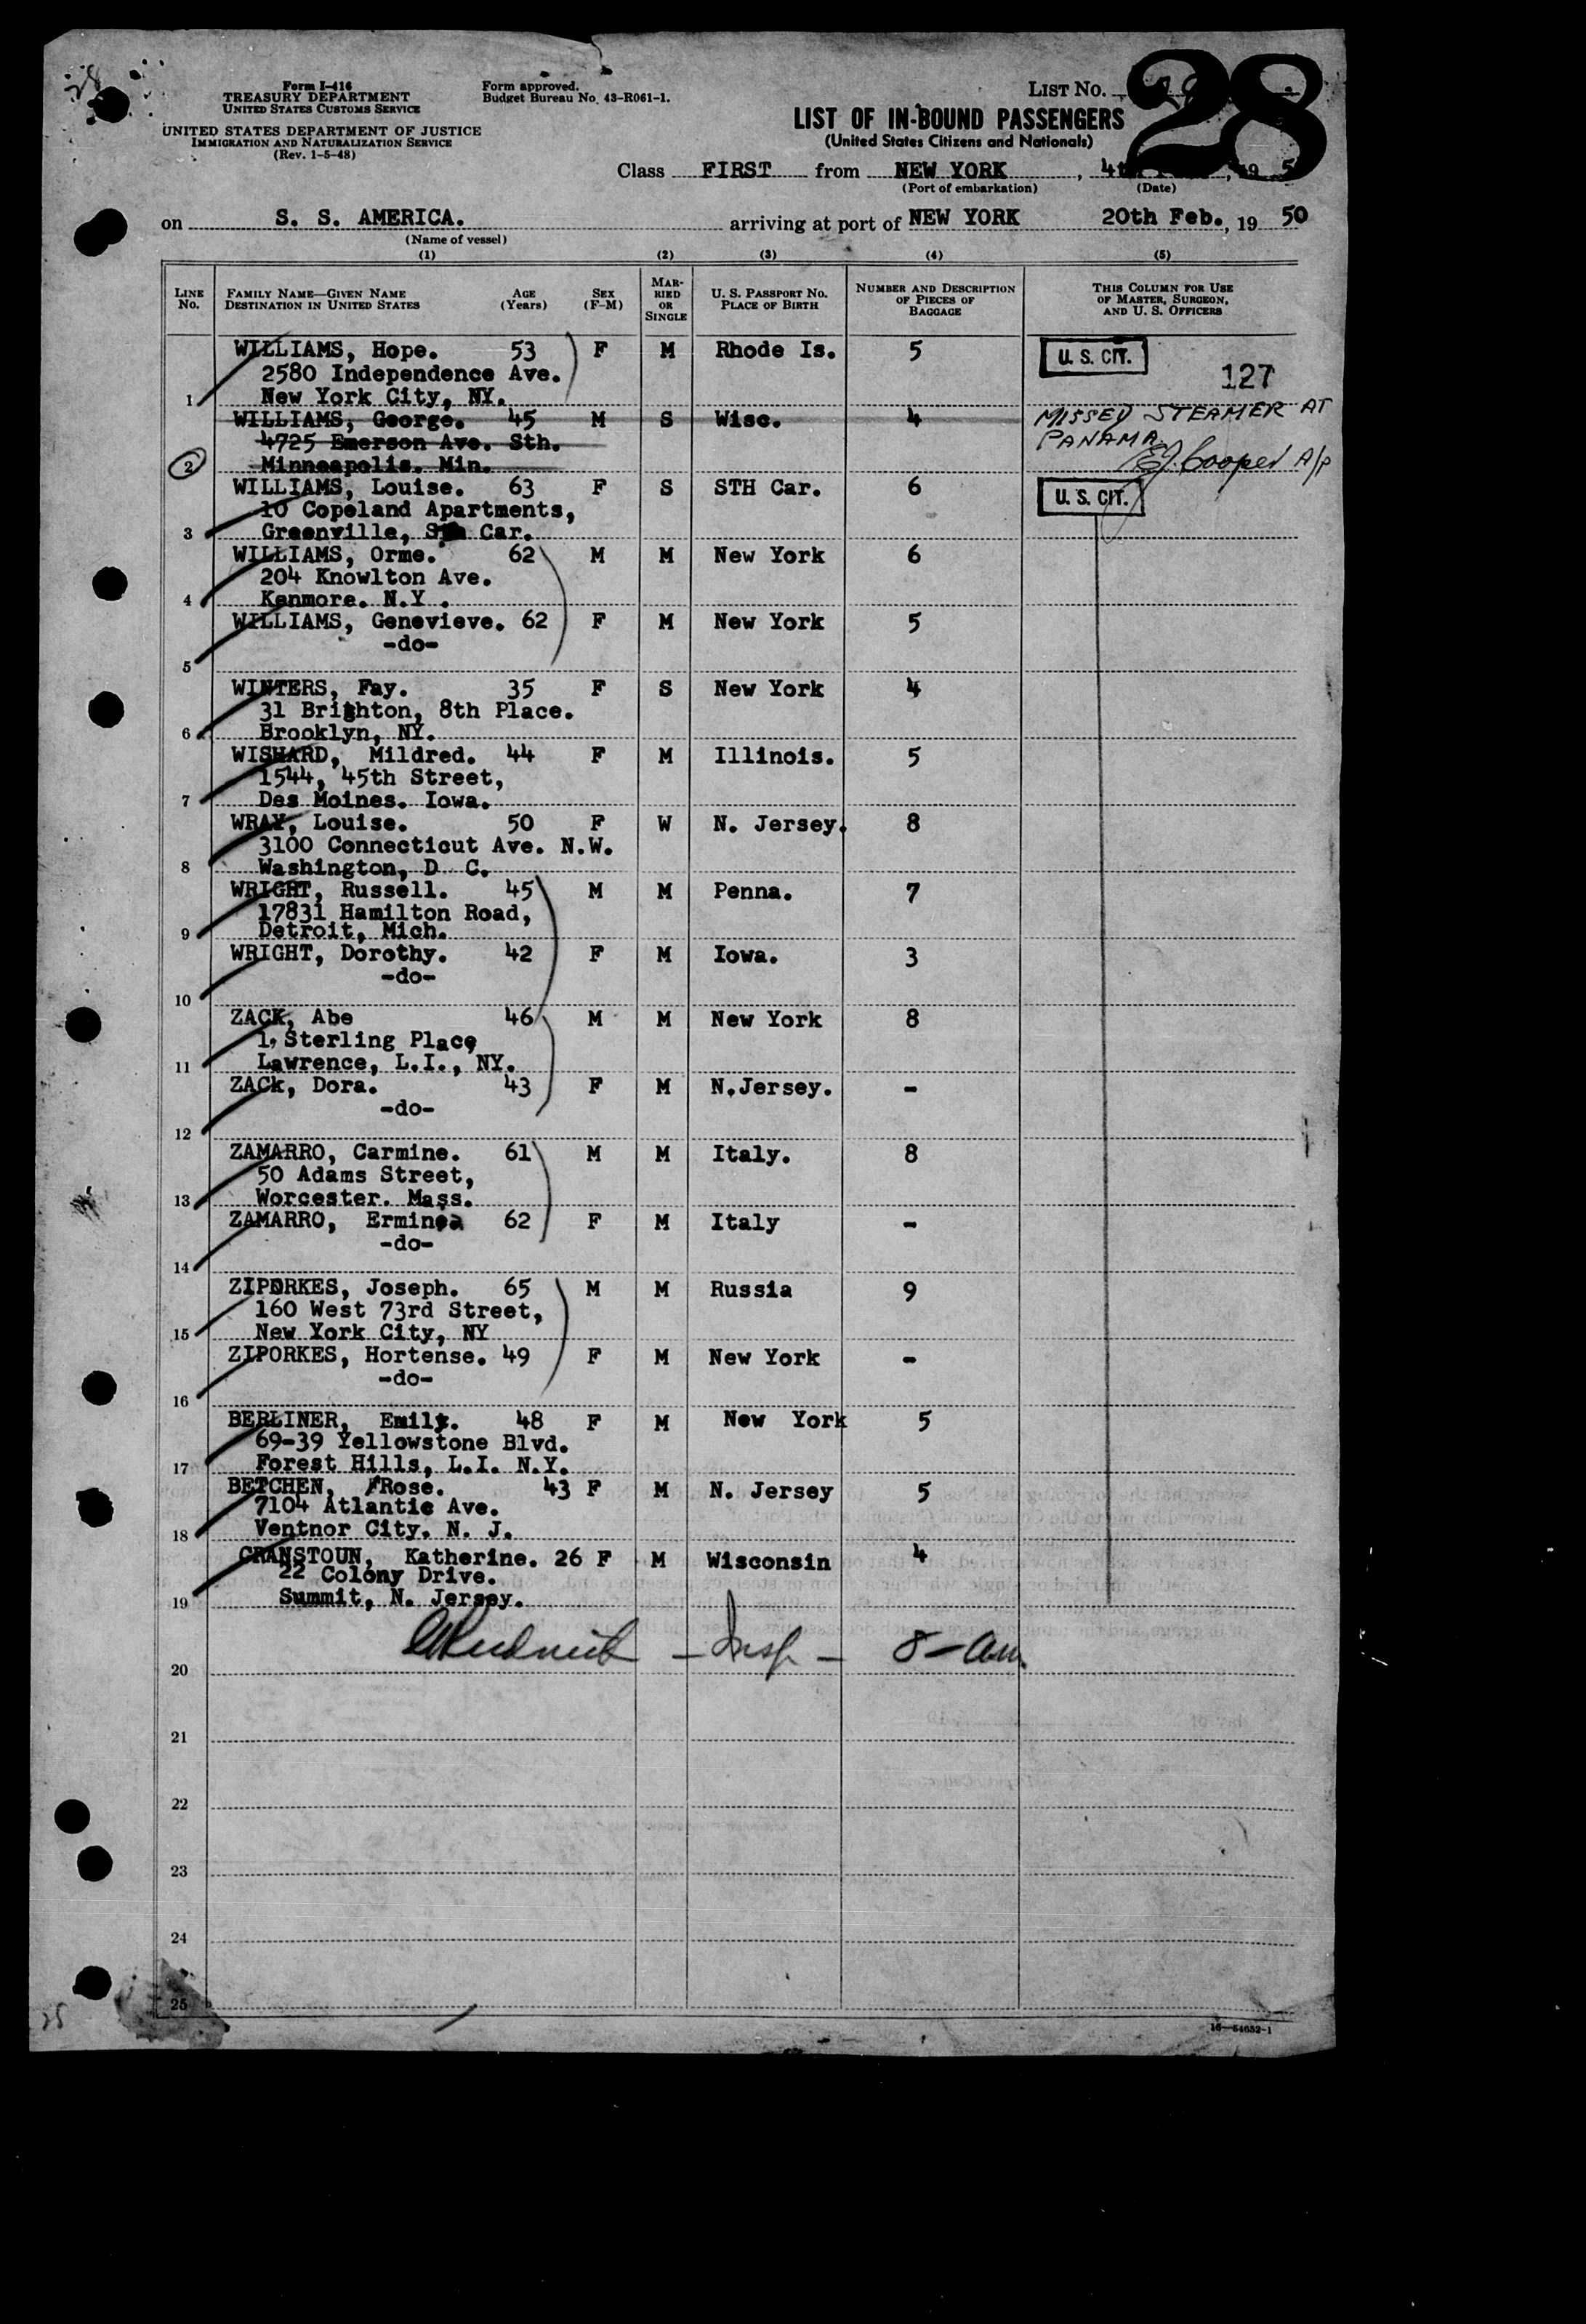 28
Form I-416
TREASURY DEPARTMENT
UNITED STATES CUSTOMS SERVICE
UNITED STATES DEPARTMENT OF JUSTICE
IMMIGRATION AND NATURALIZATION SERVICE
(Rev. 1-5-48)
Form approved.
Budget Bureau No. 43-R061-1.
LIST NO. 28
LIST OF IN-BOUND PASSENGERS
(United States Citizens and Nationals)
Class FIRST from NEW YORK, 4th , 19 5
(Port of embarkation) (Date)
on S. S. AMERICA. arriving at port of NEW YORK 20th Feb., 19 50
(Name of vessel)
(1) (2) (3) (4) (5)
LINE NO. FAMILY NAME—GIVEN NAME DESTINATION IN UNITED STATES AGE (Years) SEX (F-M) MARRIED OR SINGLE U. S. PASSPORT NO. PLACE OF BIRTH NUMBER AND DESCRIPTION OF PIECES OF BAGGAGE THIS COLUMN FOR USE OF MASTER, SURGEON, AND U. S. OFFICERS
WILLIAMS, Hope. 53 F M Rhode Is. 5 U. S. CIT.
2580 Independence Ave. 127
1 New York City, NY.
WILLIAMS, George. 45 M S Wisc. 4 MISSED STEAMER AT
4725 Emerson Ave. Sth. PANAMA
2 Minneapolis. Min. E.J. Cooper A/P
WILLIAMS, Louise. 63 F S STH Car. 6 U. S. CIT.
10 Copeland Apartments,
3 Greenville, Car.
WILLIAMS, Orme. 62 M M New York 6
204 Knowlton Ave.
4 Kenmore. N.Y.
WILLIAMS, Genevieve. 62 F M New York 5
-do-
5
WINTERS, Fay. 35 F S New York 4
31 Brighton, 8th Place.
6 Brooklyn, NY.
WISHARD, Mildred. 44 F M Illinois. 5
1544, 45th Street,
7 Des Moines. Iowa.
WRAY, Louise. 50 F W N. Jersey. 8
3100 Connecticut Ave. N.W.
8 Washington, D C.
WRIGHT, Russell. 45 M M Penna. 7
17831 Hamilton Road,
9 Detroit, Mich.
WRIGHT, Dorothy. 42 F M Iowa. 3
-do-
10
ZACK, Abe 46 M M New York 8
1, Sterling Place
11 Lawrence, L.I., NY.
ZACk, Dora. 43 F M N.Jersey. -
-do-
12
ZAMARRO, Carmine. 61 M M Italy. 8
50 Adams Street,
13 Worcester. Mass.
ZAMARRO, Erminea 62 F M Italy -
-do-
14
ZIPORKES, Joseph. 65 M M Russia 9
160 West 73rd Street,
15 New York City, NY
ZIPORKES, Hortense. 49 F M New York -
-do-
16
BERLINER, Emily. 48 F M New York 5
69-39 Yellowstone Blvd.
17 Forest Hills, L.I. N.Y.
BETCHEN, Rose. 43 F M N. Jersey 5
7104 Atlantic Ave.
18 Ventnor City. N. J.
CRANSTOUN, Katherine. 26 F M Wisconsin 4
22 Colony Drive.
19 Summit, N. Jersey.
- Insp - 8 - am.
20
21
22
23
24
25
16—54652-1